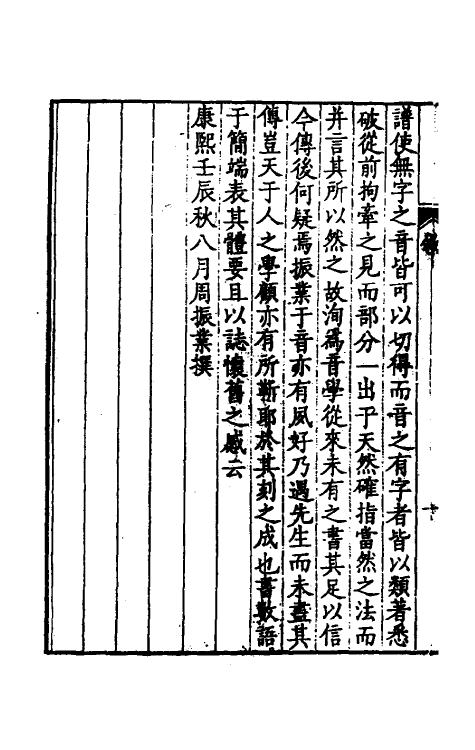 譜使無字之音皆可以切得而音之有字者皆以類著悉
破從前拘牽之見而部分一出于天然確指當然之法而
并言其所以然之故洵爲音學從來未有之書其足以信
今傳後何疑焉振業于音亦有夙好乃遇先生而未盡其
傳豈天于人之學顧亦有所靳耶於其刻之成也書數語
于簡端表其體要且以誌懷舊之感云
康熙壬辰秋八月周振業撰